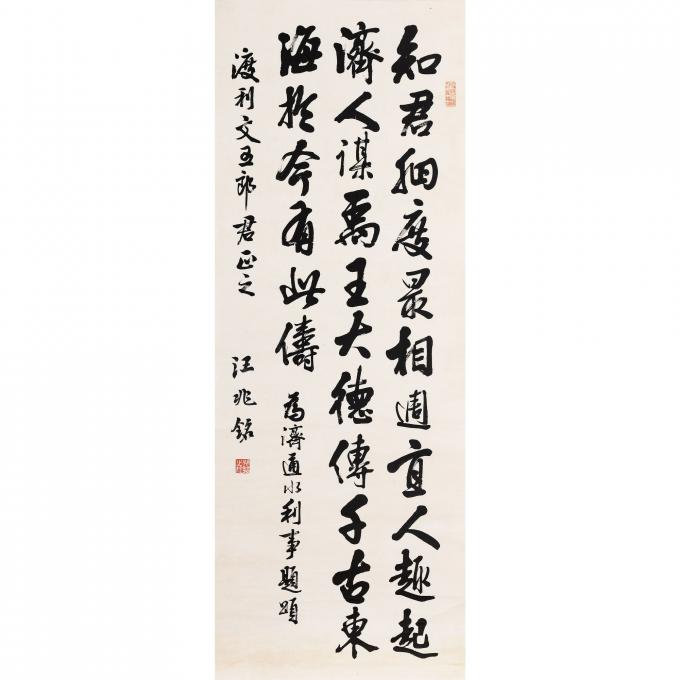 知君細度最相週宜人趣起
濟人謀禹王大德傳千古東
海於今有此儔
為濟通水利事題頌
渡利文五郎君正之
汪兆銘